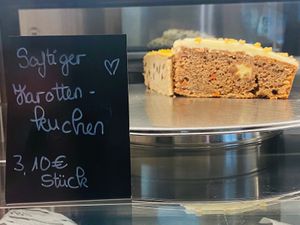 Saftiger
Karotten-
kuchen
3,10€
Stück